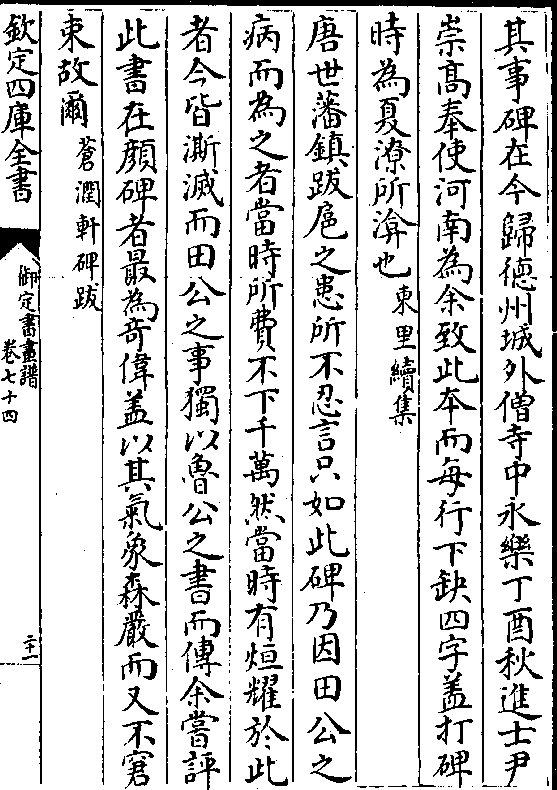 其事碑在今歸德州城外僧寺中永樂丁酉秋進士尹
崇髙奉使河南為余致此本而每行下缺四字盖打碑
時為夏潦所渰也東里續集
唐世藩鎮跋扈之患所不忍言只如此碑乃因田公之
病而為之者當時所費不下千萬然當時有烜耀於此
者今皆澌滅而田公之事獨以魯公之書而傳余嘗評
此書在顔碑者最為奇偉盖以其氣象森嚴而又不窘
束故爾蒼潤軒碑跋
欽定四庫全書
御定書畫譜
卷七十四
二十一